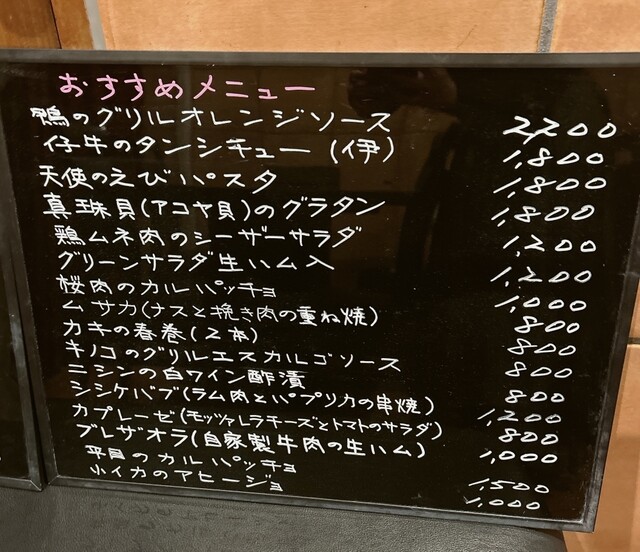 おすすめメニュー
鴨のグリルオレンジソース 2,200
仔牛のタンシチュー(伊) 1,800
天使のえびパスタ 1,800
真珠貝(アコヤ貝)のグラタン 1,800
鶏ムネ肉のシーザーサラダ 1,200
グリーンサラダ生ハム入 1,200
桜肉のカルパッチョ 1,000
ムサカ(ナスと挽き肉の重ね焼) 800
カキの春巻(2本) 800
キノコのグリルエスカルゴソース 800
ニシンの白ワイン酢漬 800
シシケバブ(ラム肉とパプリカの串焼) 1,200
カプレーゼ(モッツァレラチーズとトマトのサラダ) 800
ブレザオラ(自家製牛肉の生ハム) 1,000
平目のカルパッチョ 1,500
小イカのアヒージョ 1,000